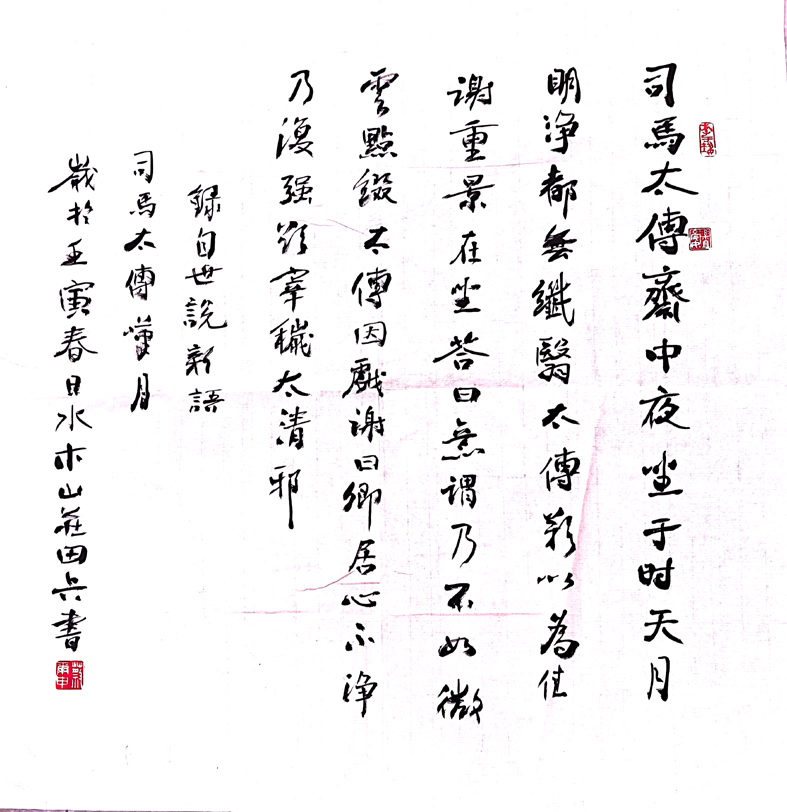 司馬太傅齋中夜坐于时天月
明浄都無纖翳太傅歎以為佳
謝重景在坐答曰意謂乃不如微
雲點綴太傅因戲謝曰卿居心不浄
乃復强欲宰穢太清邪
錄自世說新語
司馬太傅嘆月
歲於壬寅春日水木山莊因兵書